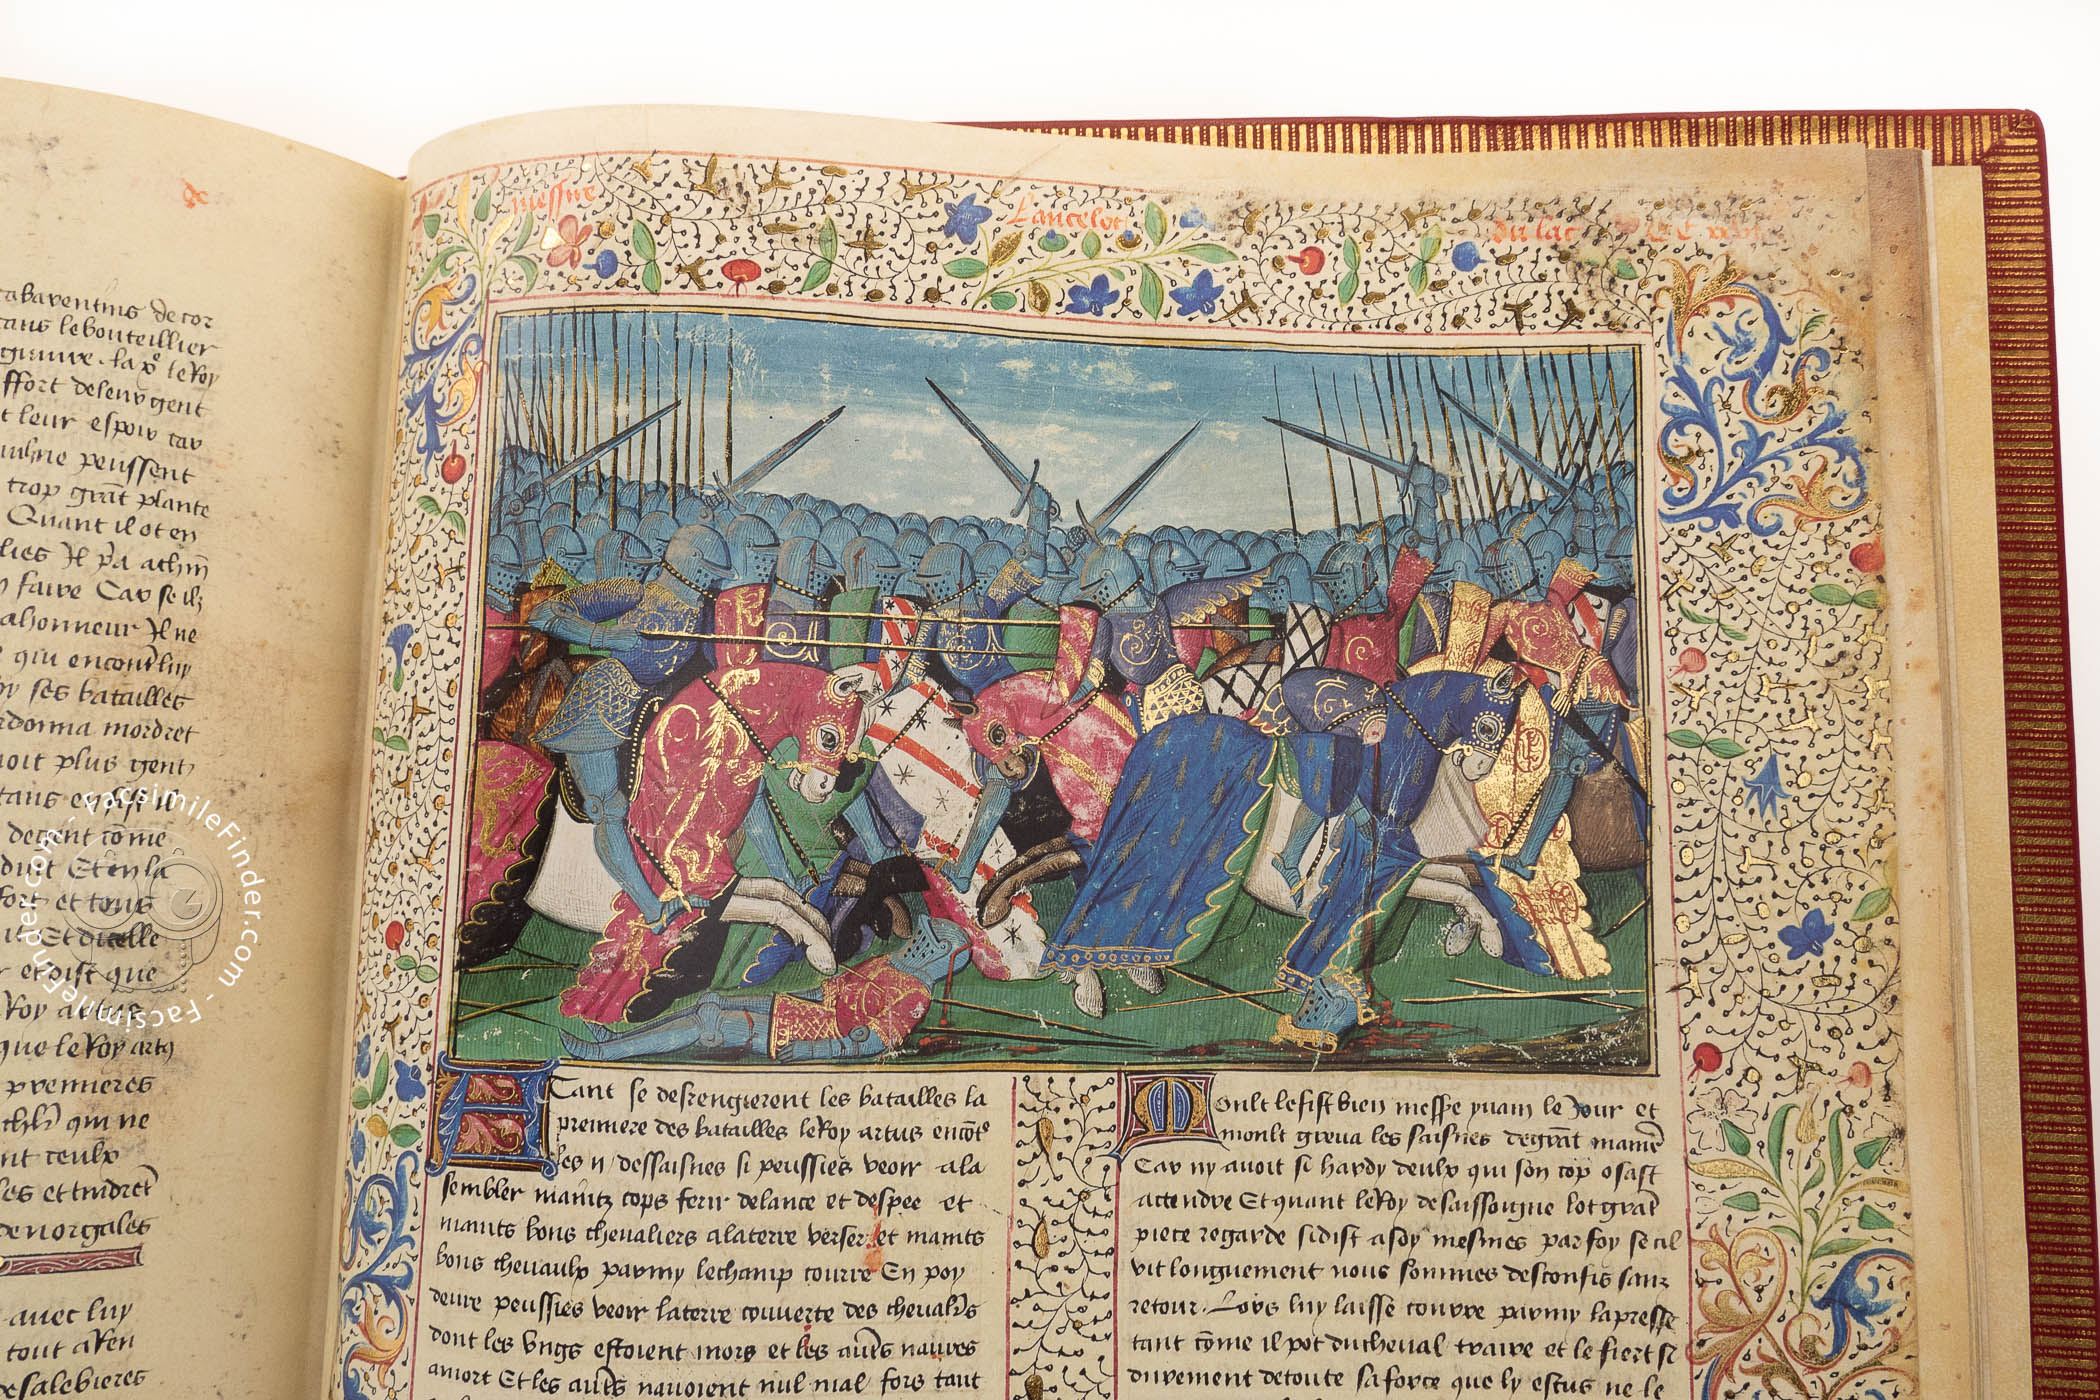 messire Lancelot du lac
de cor
tans le bouteillier
le Roy
ffort de leur gent
t leur espoir car
peussent
trop grāt plante
Quant il ot en
faire Car se ilz
ahonneur Il ne
ses batailles
mordret
oit plus gent
decent cōme
fort et tous
Et dicelle
que
Roy artus
que le Roy artꝰ
premieres
qui ne
nt ceulx
de norgales
avec luy
tout
de salebieres
Tant se desrengierent les batailles la
premiere des batailles le Roy artus encōtꝰ
les si peussies veoir a la
sembler maintz cops ferir de lance et despee et
maints bons chevaliers a la terre verser et maints
bons chevaulx parmy le champ courre En poy
deure peussies veoir la terre couverte des chevalrs
dont les ungs estoient mors et les autrs navres
a mort Et les autrs navoient nul mal fors tant
Moult le fist bien messe yvain le Jour et
moult greva les saisnes de grāt maniere
Car ny avoit si hardy deulx qui son cop osast
actendre Et quant le Roy de saissoigne lot grāt
piece regarde si dist a soy mesmes par foy se cil
vit longuement nous sommes desconfis sanz
retour. Lors luy laisse courre parmy la presse
tant cōme il pot du cheval traire et le fiert si
durement de toute sa force que
FacsimileFinder.com - FacsimileFinder.com